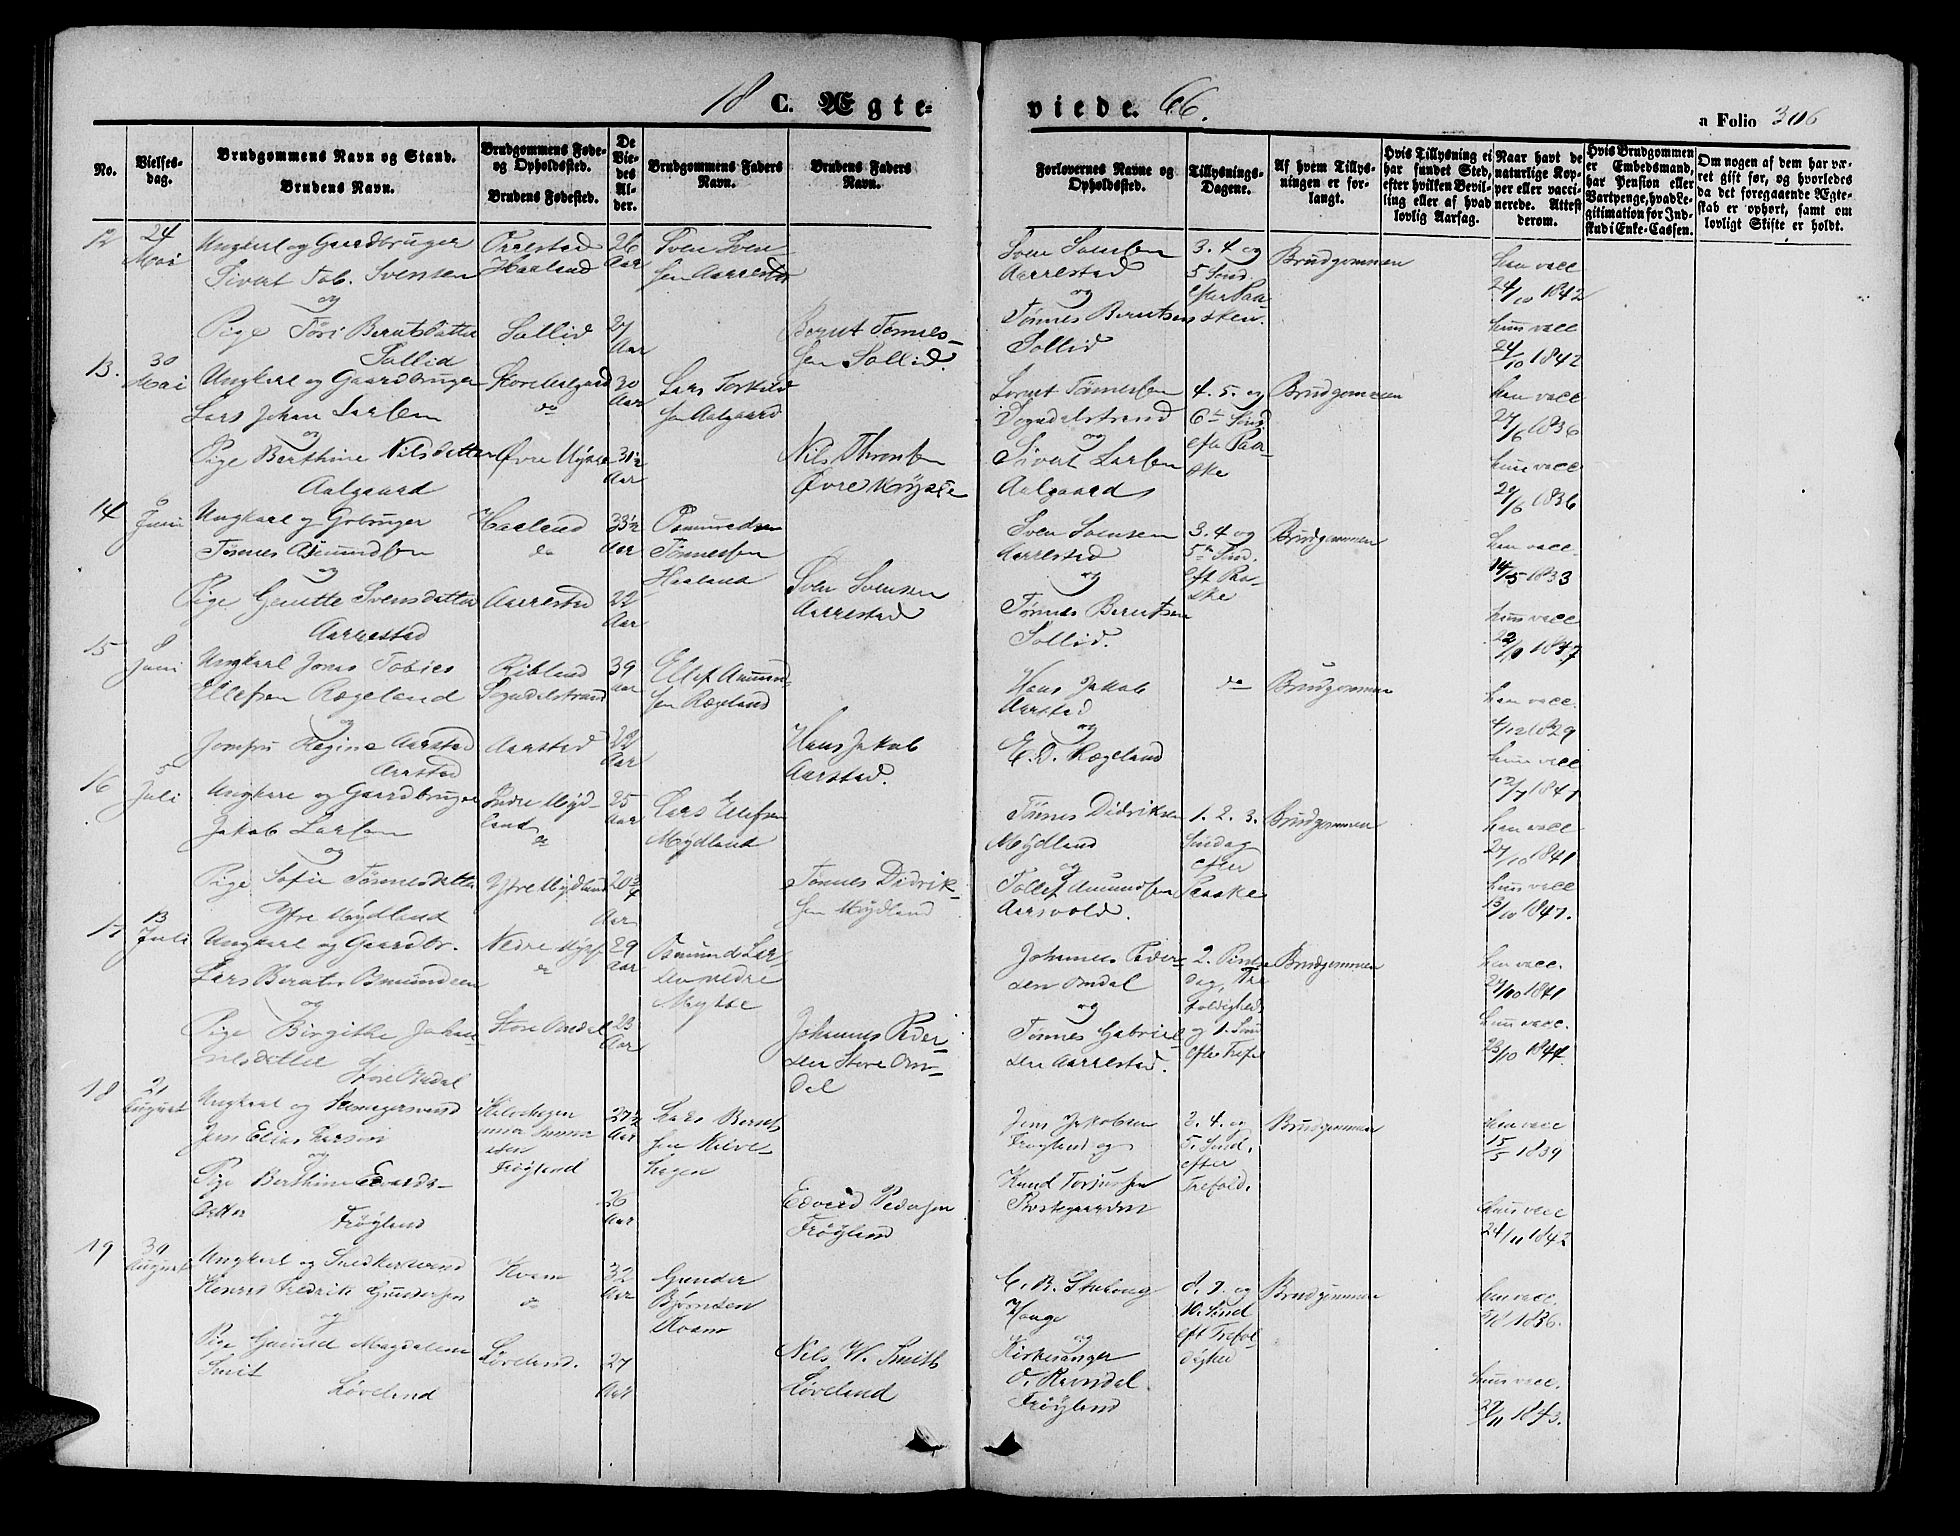 18 C. Ægte-
viede. 66.
a Folio 306
No.
Vielses-
dag.
Brudgommens Navn og Stand.
Brudens Navn.
Brudgommens Føde-
og Opholdssted.
Brudens Fødested.
De
Vie-
des
Al-
der.
Brudgommens Faders
Navn.
Brudens Faders
Navn.
Forlovernes Navne og
Opholdssted.
Tillysnings-
Dagene.
Af hvem Tillys-
ningen er for-
langt.
Hvis Tillysning ei
har fundet Sted,
efter hvilken Bevil-
ling eller af hvad
lovlig Aarsag.
Naar havt de
naturlige Kop-
per eller vacci-
nerede. Attest
derom.
Hvis Brudgommen
er Embedsmand,
har Pension eller
Vartpenge, hvad Le-
gitimation for Ind-
skud i Enke-Cassen.
Om nogen af dem har væ-
ret gift før, og hvorledes
da det foregaaende Ægte-
stab er ophørt, samt om
lovligt Skifte er holdt.
12
24
Mai
Ungkarl og Gaardbruger
Sivert Tob. Svensen
og
Pige Töri Berntsdatter
Sollid
Aarestad
Haaland
Sollid
26
Aar
27
Aar
Sven Sven
sen Aarrestad
Bernt Tönnes-
sen Sollid.
Sven Svensen
Aarrestad
og
Tönnes Berntsen
Sollid
3. 4 og
5 Sönd
efter Paa-
sken.
Brudgommen
han vacc
24/10 1842
hun vacc
24/10 1842
13.
30
Mai
Ungkarl og Gaardbruger
Lars Johan Larsen
og
Pige Berthine Nilsdatter
Aalgaard
Store Aalgaard
do
Övre
30
Aar
31½
Aar
Lars Torkild
sen Aalgaard
Nils
Övre
Bernt Tönnesen
Sogndalstrand
og
Sivert Larsen
Aalgaard
4. 5. og
6te Sönd
efter Paa-
ske
Brudgommen
han vacc
27/6 1836
hun vacc
29/6 1836
14
8
Juni
Ungkarl og Gbruger
Tönnes Asmundsen
og
Pige Gunette Svensdatter
Aarrestad
Haaland
do
Aarrestad
33½
Aar
22
Aar
Osmund
Tönnessen
Haaland
Sven Svensen
Aarrestad
Sven Svensen
Aarrestad
og
Tönnes Berntsen
Sollid.
3. 4 og
5te Sönd.
eft Paa-
ske
Brudgommen
han vacc.
14/5 1833
hun vacc
22/10 1847
15
8
Juni
Ungkarl Jonas Tobies
Ellefsen Rægeland
og
Jomfru Regine Aarstad
Aarstad
Sogndalstrand
Aarstad
39
Aar
22
Aar
Ellef Amund-
sen Rægeland
Hans Jakob
Aarstad.
Hans Jakob
Aarstad
og
E. D. Rægeland
do
Brudgommen
han vacc.
4/12 1829
hun vacc
12/7 1847
16
5
Juli
Ungkarl og Gaardbruger
Jakob Larsen
og
Pige Sofie Tönnesdatter
Ytre Möydland
Indre Möyd-
land
do
Ytre Möydland
25
Aar
20¾
Aar
Lars Ellefsen
Möydland
Tönnes Didrik-
sen Möydland
Tönnes Didriksen
Möydland
og
Tollef Amundsen
Aarsvold.
1. 2. 3.
Söndag
efter
Paaske
Brudgommen
han vacc
27/10 1841
hun vacc
13/10 1847.
17
13
Juli
Ungkarl og Gaardbr.
Lars Berntes Osmundsen
og
Pige Birgithe Johan-
nesdatter
Store Omdal
Nedre
do
Store Omdal
29
Aar
23
Aar
Osmund Lar-
sen nedre
Johannes Peder-
sen Store Om-
dal
Johannes Peder-
sen Omdal
og
Tönnes Gabriel-
sen Aarrestad.
2. Pindse
dag, Tre
foldighed,
og 1. Sönd
efter Trefol
Brudgommen
han vacc.
27/10 1841
hun vacc.
23/10 1844.
18
21
August
Ungkarl og
Jens Elias Larsen
og
Pige Berthine Edvards-
datter Fröyland
Fröyland
27½
Aar
26
Aar
Lars Bernt
sen Kielve-
hagen
Edverd Pedersen
Fröyland
Jens Jakobsen
Fröyland og
Knud Torjussen
Prestgaarden
3. 4. og
5. Sönd.
efter
Trefold.
Brudgommen
han vacc
15/5 1839
hun vacc
24/11 1842
19
30
August
Ungkarl og Snedkersvend
Konrad Fredrik Gundersen
og
Pige Gunild Magdalene
Smit
Löveland
Kvam
do
Löveland.
32
Aar
27
Aar
Gunder
Björnsen
Kvam
Nils W. Smith
Löveland
Hauge
og
Kirkesanger
O. Ramdal
Fröyland
8. 9. og
10. Sönd
eft Trefol
dighed
Brudgommen
han vacc.
1836.
hun vacc.
29/11 1843.